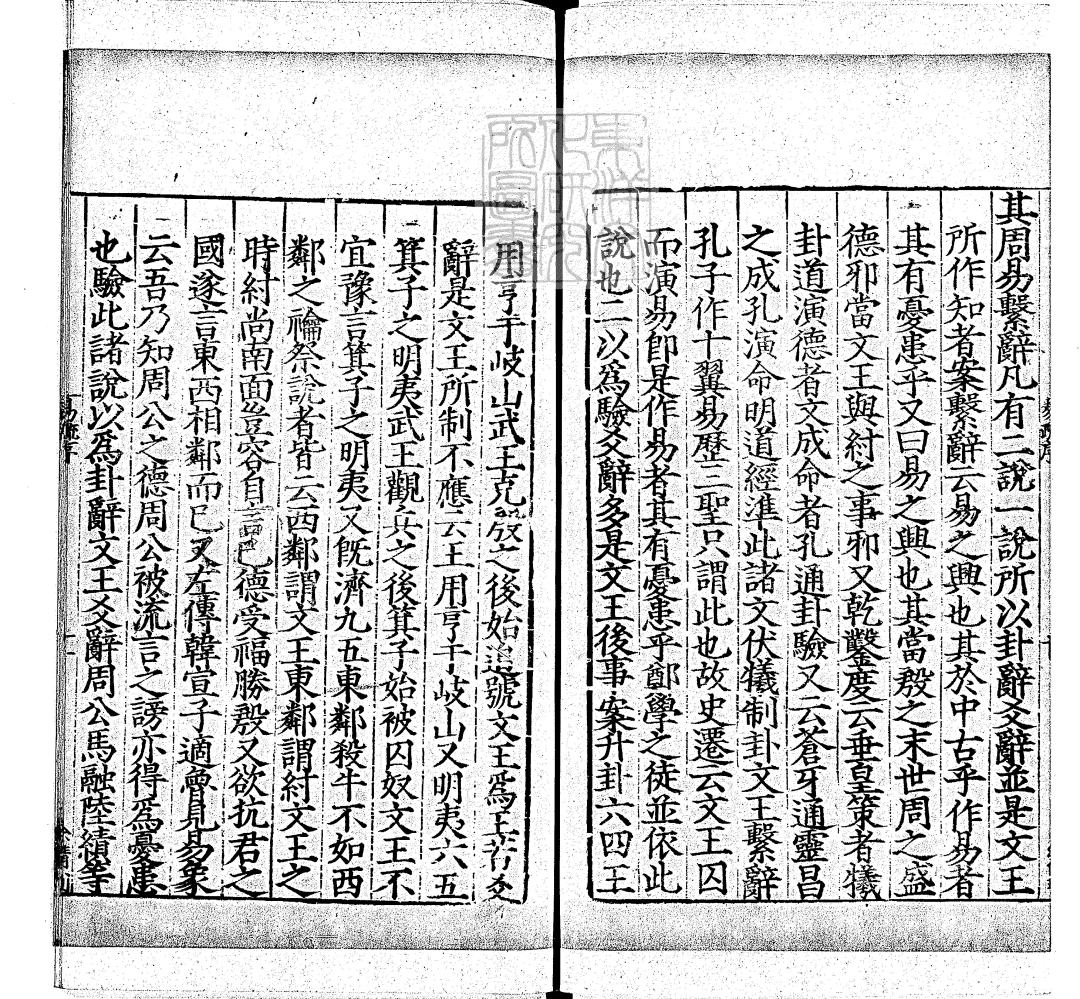 其周易繫辭凡有二說一說所以卦辭爻辭並是文王
所作知者案繫辭云易之興也其於中古乎作易者
其有憂患乎又曰易之興也其當殷之末世周之盛
德邪當文王與紂之事邪又乾鑿度云垂皇策者犧
卦道演德者文成命者孔通卦驗又云蒼牙通靈昌
之成孔演命明道經準此諸文伏犧制卦文王繫辭
孔子作十翼易歷三聖只謂此也故史遷云文王囚
而演易卽是作易者其有憂患乎鄭學之徒並依此
說也二以爲驗爻辭多是文王後事案升卦六四王
用亨于岐山武王克殷之後始追號文王爲王若爻
辭是文王所制不應云王用亨于岐山又明夷六五
箕子之明夷武王觀兵之後箕子始被囚奴文王不
宜豫言箕子之明夷又旣濟九五東鄰殺牛不如西
鄰之禴祭說者皆云西鄰謂文王東鄰謂紂文王之
時紂尚南面豈容自言己德受福勝殷又欲抗君之
國遂言東西相鄰而已又左傳韓宣子適魯見易象
云吾乃知周公之德周公被流言之謗亦得爲憂患
也驗此諸說以爲卦辭文王爻辭周公馬融陸績等